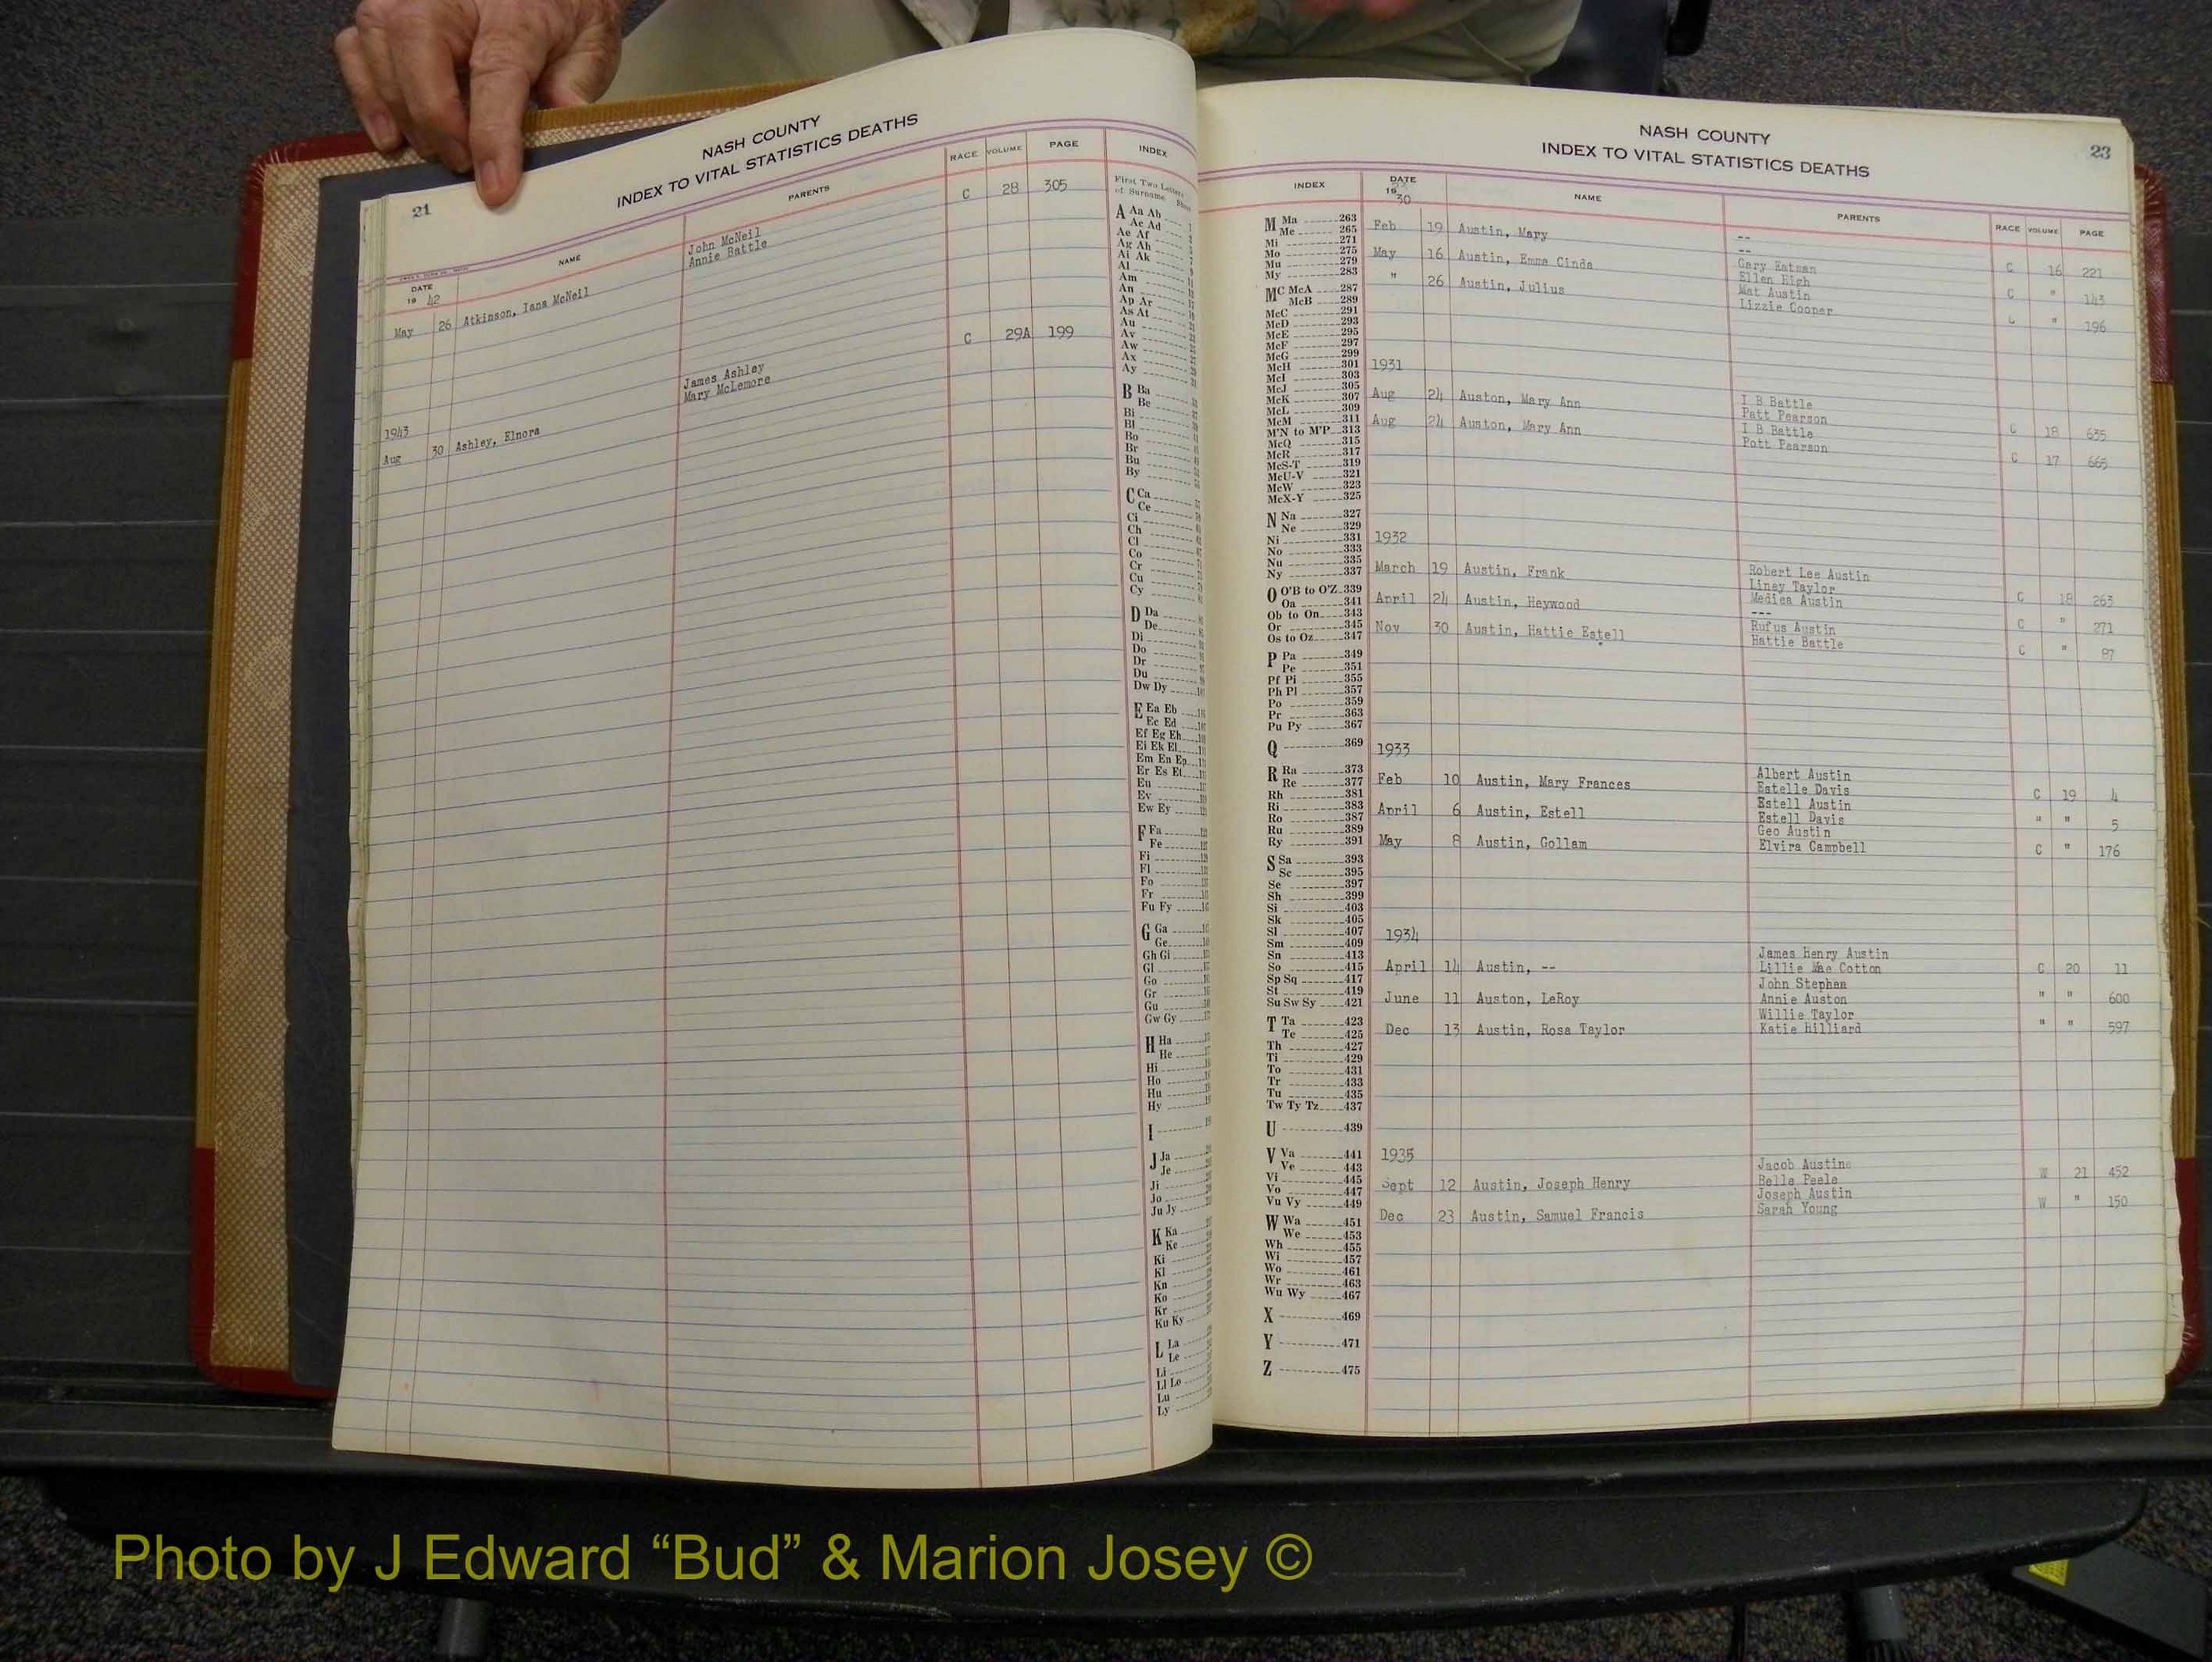 21
NASH COUNTY
INDEX TO VITAL STATISTICS DEATHS
DATE NAME PARENTS RACE VOLUME PAGE
19 42
May 26 Atkinson, Iana McNeil John McNeil C 28 305
Annie Battle
1943
Aug 30 Ashley, Elnora James Ashley C 29A 199
Mary McLemore
INDEX
First Two Letters
of Surname
A Aa Ab
Ac Ad
Ae Af
Ag Ah
Ai Ak
Al
Am
An
Ap Ar
As At
Au
Av
Aw
Ax
Ay
B Ba
Be
Bi
Bl
Bo
Br
Bu
By
C Ca
Ce
Ci
Ch
Cl
Co
Cr
Cu
Cy
D Da
De
Di
Do
Dr
Du
Dw Dy
E Ea Eb
Ec Ed
Ef Eg Eh
Ei Ek El
Em En Ep
Er Es Et
Eu
Ev
Ew Ey
F Fa
Fe
Fi
Fl
Fo
Fr
Fu Fy
G Ga
Ge
Gh Gi
Gl
Go
Gr
Gu
Gw Gy
H Ha
He
Hi
Ho
Hu
Hy
I
J Ja
Je
Ji
Jo
Ju Jy
K Ka
Ke
Ki
Kl
Kn
Ko
Kr
Ku Ky
L La
Le
Li
Ll Lo
Lu
Ly
NASH COUNTY 23
INDEX TO VITAL STATISTICS DEATHS
INDEX
M Ma 263
Me 265
Mi 271
Mo 275
Mu 279
My 283
MC McA 287
McB 289
McC 291
McD 293
McE 295
McF 297
McG 299
McH 301
McI 303
McJ 305
McK 307
McL 309
McM 311
M'N to M'P 313
McQ 315
McR 317
McS-T 319
McU-V 321
McW 323
McX-Y 325
N Na 327
Ne 329
Ni 331
No 333
Nu 335
Ny 337
O O'B to O'Z 339
Oa 341
Ob to On 343
Or 345
Os to Oz 347
P Pa 349
Pe 351
Pf Pi 355
Ph Pl 357
Po 359
Pr 363
Pu Py 367
Q 369
R Ra 373
Re 377
Rh 381
Ri 383
Ro 387
Ru 389
Ry 391
S Sa 393
Sc 395
Se 397
Sh 399
Si 403
Sk 405
Sl 407
Sm 409
Sn 413
So 415
Sp Sq 417
St 419
Su Sw Sy 421
T Ta 423
Te 425
Th 427
Ti 429
To 431
Tr 433
Tu 435
Tw Ty Tz 437
U 439
V Va 441
Ve 443
Vi 445
Vo 447
Vu Vy 449
W Wa 451
We 453
Wh 455
Wi 457
Wo 461
Wr 463
Wu Wy 467
X 469
Y 471
Z 475
DATE NAME PARENTS RACE VOLUME PAGE
19 30
Feb 19 Austin, Mary -- C 16 221
--
May 16 Austin, Emma Cinda Gary Eatman C " 143
Ellen High
" 26 Austin, Julius Mat Austin C " 196
Lizzie Cooper
1931
Aug 24 Auston, Mary Ann I B Battle C 18 635
Patt Pearson
Aug 24 Auston, Mary Ann I B Battle C 17 665
Pott Pearson
1932
March 19 Austin, Frank Robert Lee Austin C 18 263
Liney Taylor
April 24 Austin, Heywood Medica Austin C " 271
---
Nov 30 Austin, Hattie Estell Rufus Austin C " 87
Hattie Battle
1933
Albert Austin
Feb 10 Austin, Mary Frances Estelle Davis C 19 4
Estell Austin
April 6 Austin, Estell Estell Davis " " 5
Geo Austin
May 8 Austin, Gollam Elvira Campbell C " 176
1934
James Henry Austin
April 14 Austin, -- Lillie Mae Cotton C 20 11
John Stephen
June 11 Auston, LeRoy Annie Auston " " 600
Willie Taylor
Dec 13 Austin, Rosa Taylor Katie Hilliard " " 597
1935
Jacob Austine
Sept 12 Austin, Joseph Henry Belle Peele W 21 452
Joseph Austin
Dec 23 Austin, Samuel Francis Sarah Young W " 150
Photo by J Edward “Bud” & Marion Josey ©